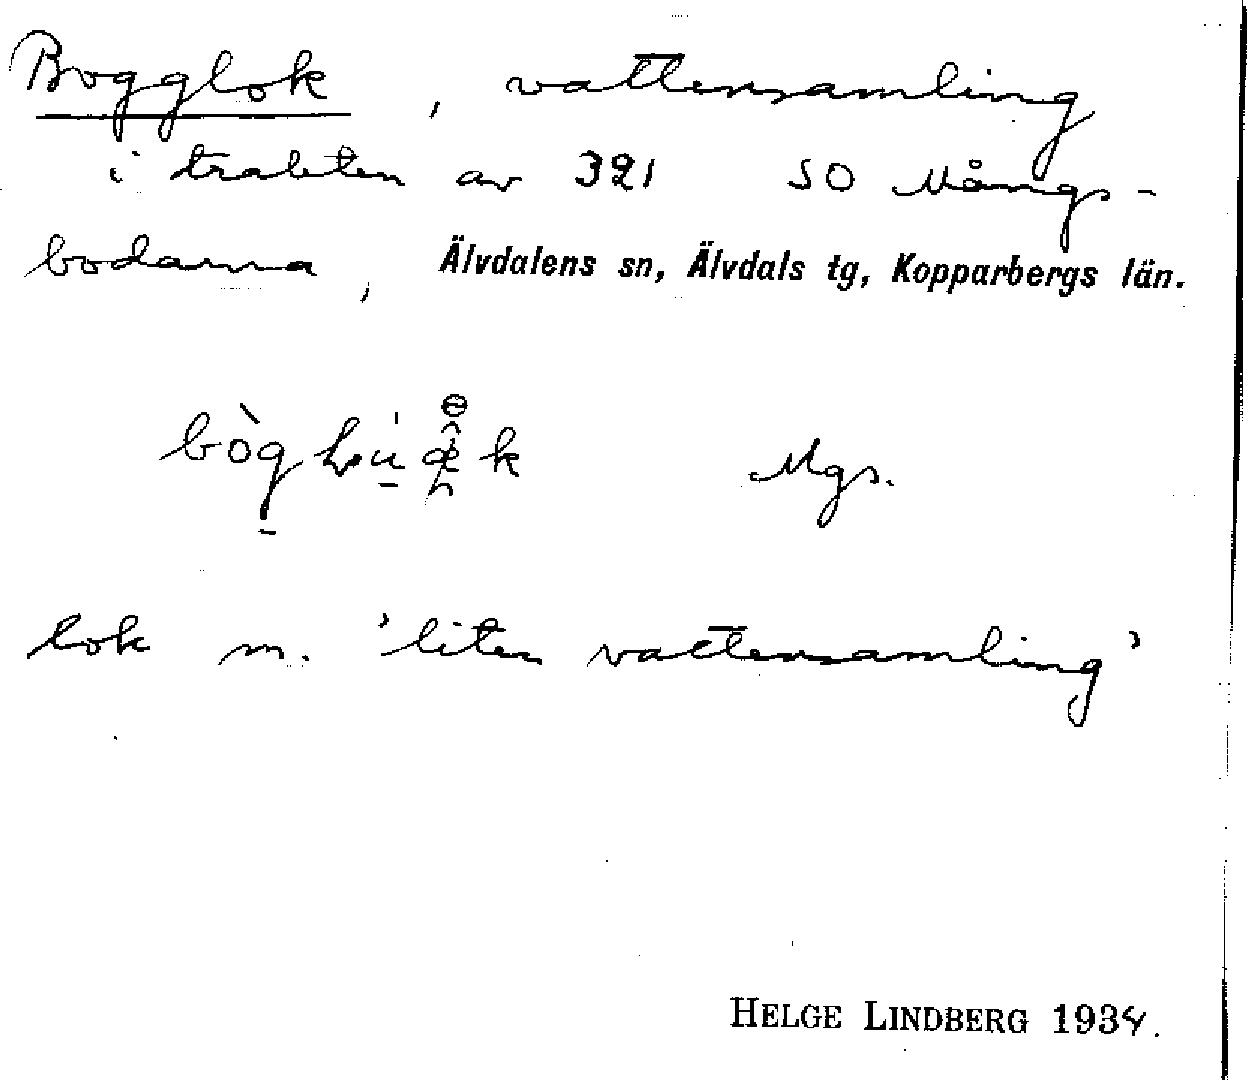 Bogglok, vattensamling
i trakten av 321 SO Mångs-
bodarna, Älvdalens sn, Älvdals tg, Kopparbergs län.
Mgs.
lok m. 'liten vattensamling'
HELGE LINDBERG 1934.